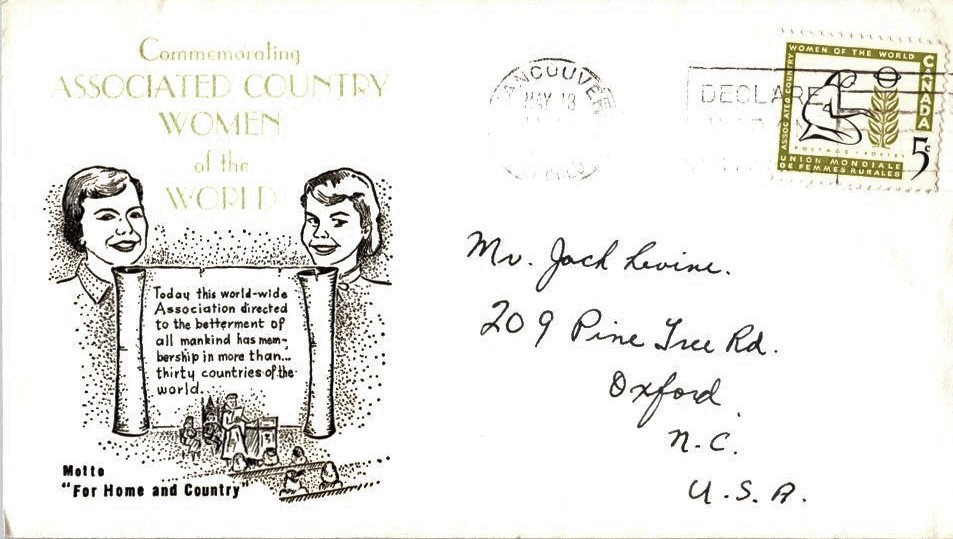 Commemorating
ASSOCIATED COUNTRY
WOMEN
of the
WORLD
Today this world-wide
Association directed
to the betterment of
all mankind has mem-
bership in more than...
thirty countries of the
world.
Motto
"For Home and Country"
VANCOUVER
MAY 18
DECLARE
ASSOCIATED COUNTRY
WOMEN OF THE WORLD
CANADA
POSTAGE • POSTES
5¢
UNION MONDIALE
DE FEMMES RURALES
Mr. Jack Levine.
209 Pine Tree Rd.
Oxford
N.C.
U.S.A.